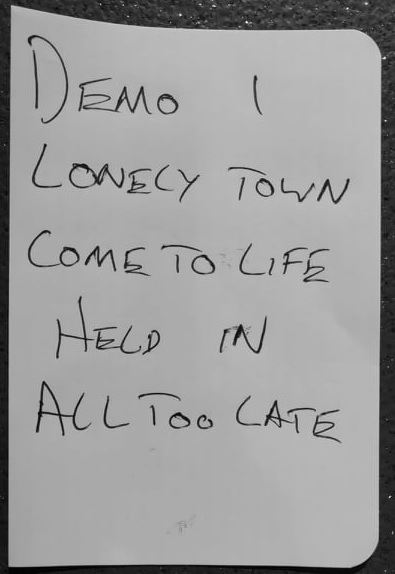 DEMO 1
LONELY TOWN
COME TO LIFE
HELD IN
ALL TOO LATE